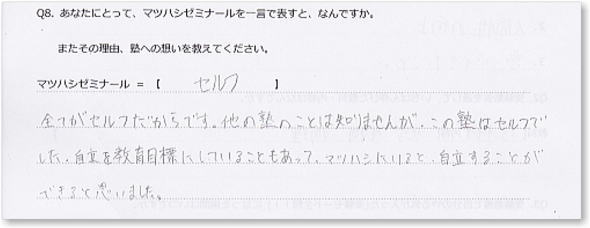 Q8. あなたにとって、マツハシゼミナールを一言で表すと、なんですか。
またその理由、塾への想いを教えてください。
マツハシゼミナール ＝ 【 セルフ 】
全てがセルフだからです。他の塾のことは知りませんが、この塾はセルフで
した。自立を教育目標にしていることもあって、マツハシにいると、自立することが
できると思いました。